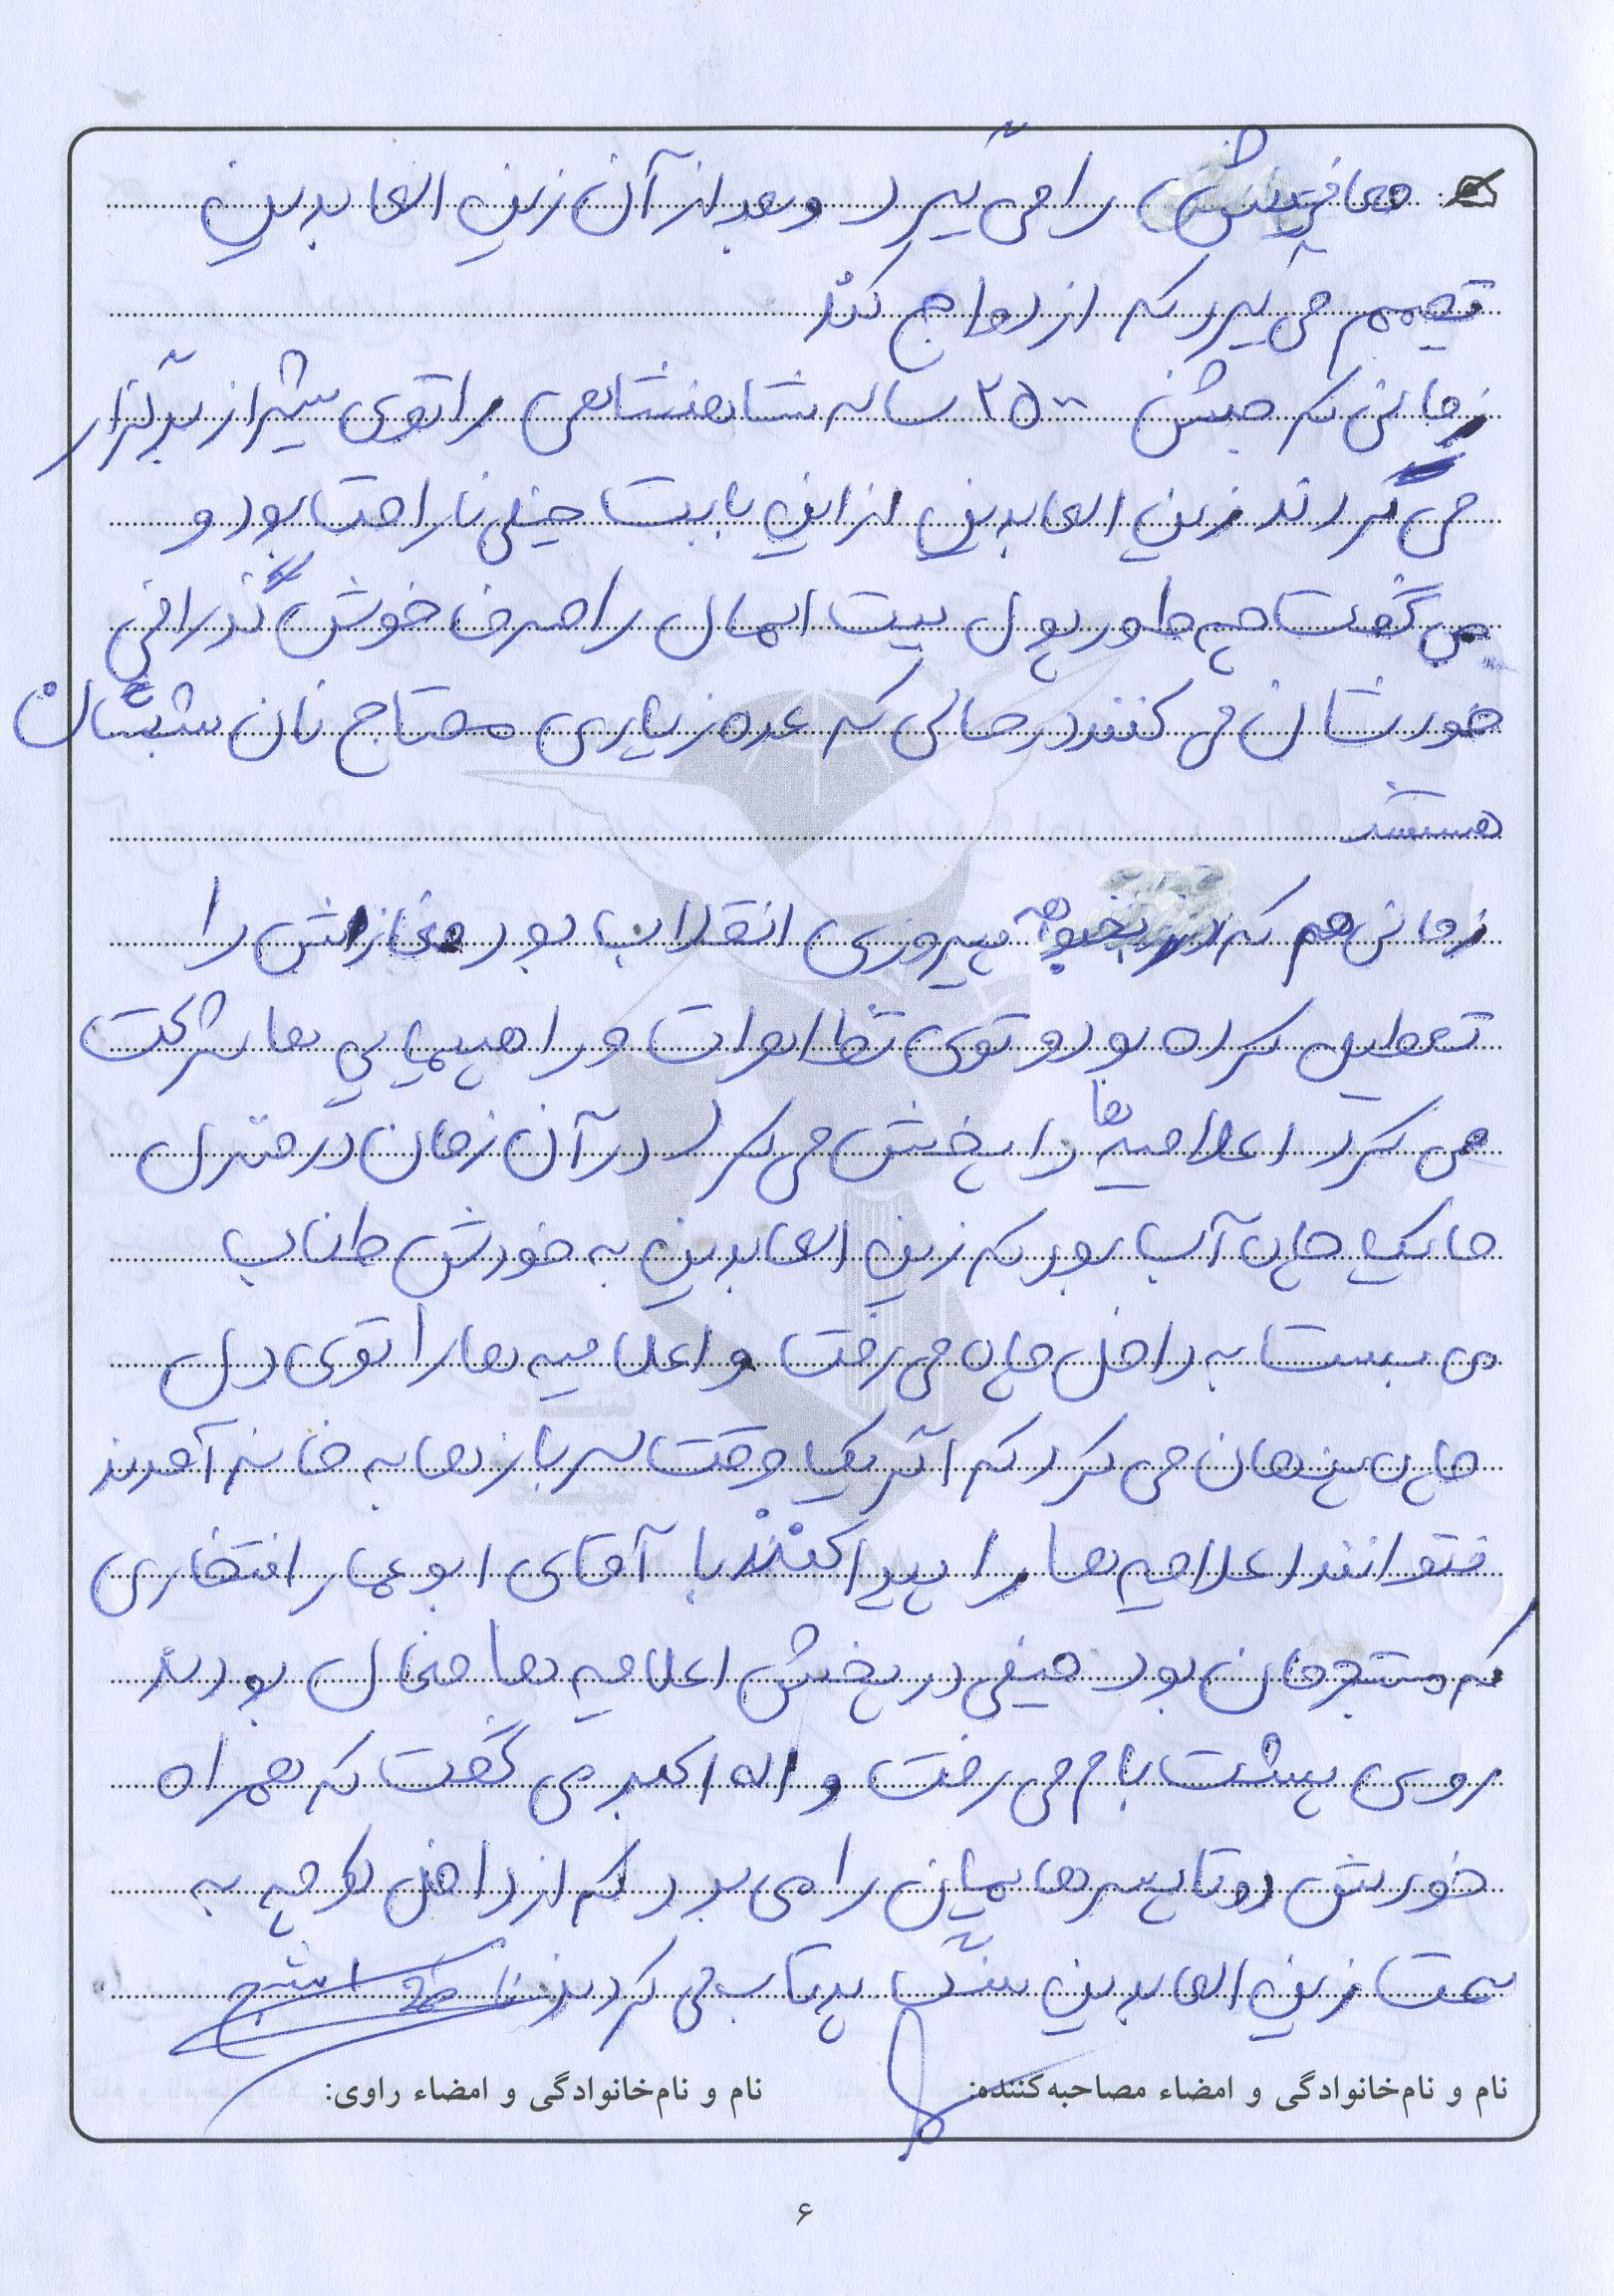 معافیتش را می گیرد و بعد از آن زین العابدین
تصمیم می گیرد که ازدواج کند
زمانی که جشن ۲۵۰۰ ساله شاهنشاهی را توی شیراز برگزار
می کردند زین العابدین از این بابت خیلی ناراحت بود و
می گفت چه طور پول بیت المال را صرف خوش گذرانی
خودشان می کنند در حالی که عده زیادی محتاج نان شبشان
هستند
زمانی هم که در بحبوحه پیروزی انقلاب بود مغازاش را
تعطیل کرده بود و توی تظاهرات و راهپیمایی ها شرکت
می کرد اعلامیه ها را پخش می کرد در آن زمان در منزل
ما یک چاه آب بود که زین العابدین به خودش طناب
می بست به داخل چاه می رفت و اعلامیه ها را توی دل
چاه پنهان می کرد که اگر یک وقت سربازها به خانه آمدند
نتوانند اعلامیه ها را پیدا کنند با آقای ابوعمار افتخاری
که مستجرمان بود خیلی در پخش اعلامیه ها فعال بودند
روی پشت بام می رفت و اله اکبر می گفت که همراه
خودش دو تا پسرهایمان را می برد که از داخل کوچه به
سمت زین العابدین سنگ پرتاب می کردند
نام و نام‌خانوادگی و امضاء مصاحبه‌کننده: نام و نام‌خانوادگی و امضاء راوی:
۶